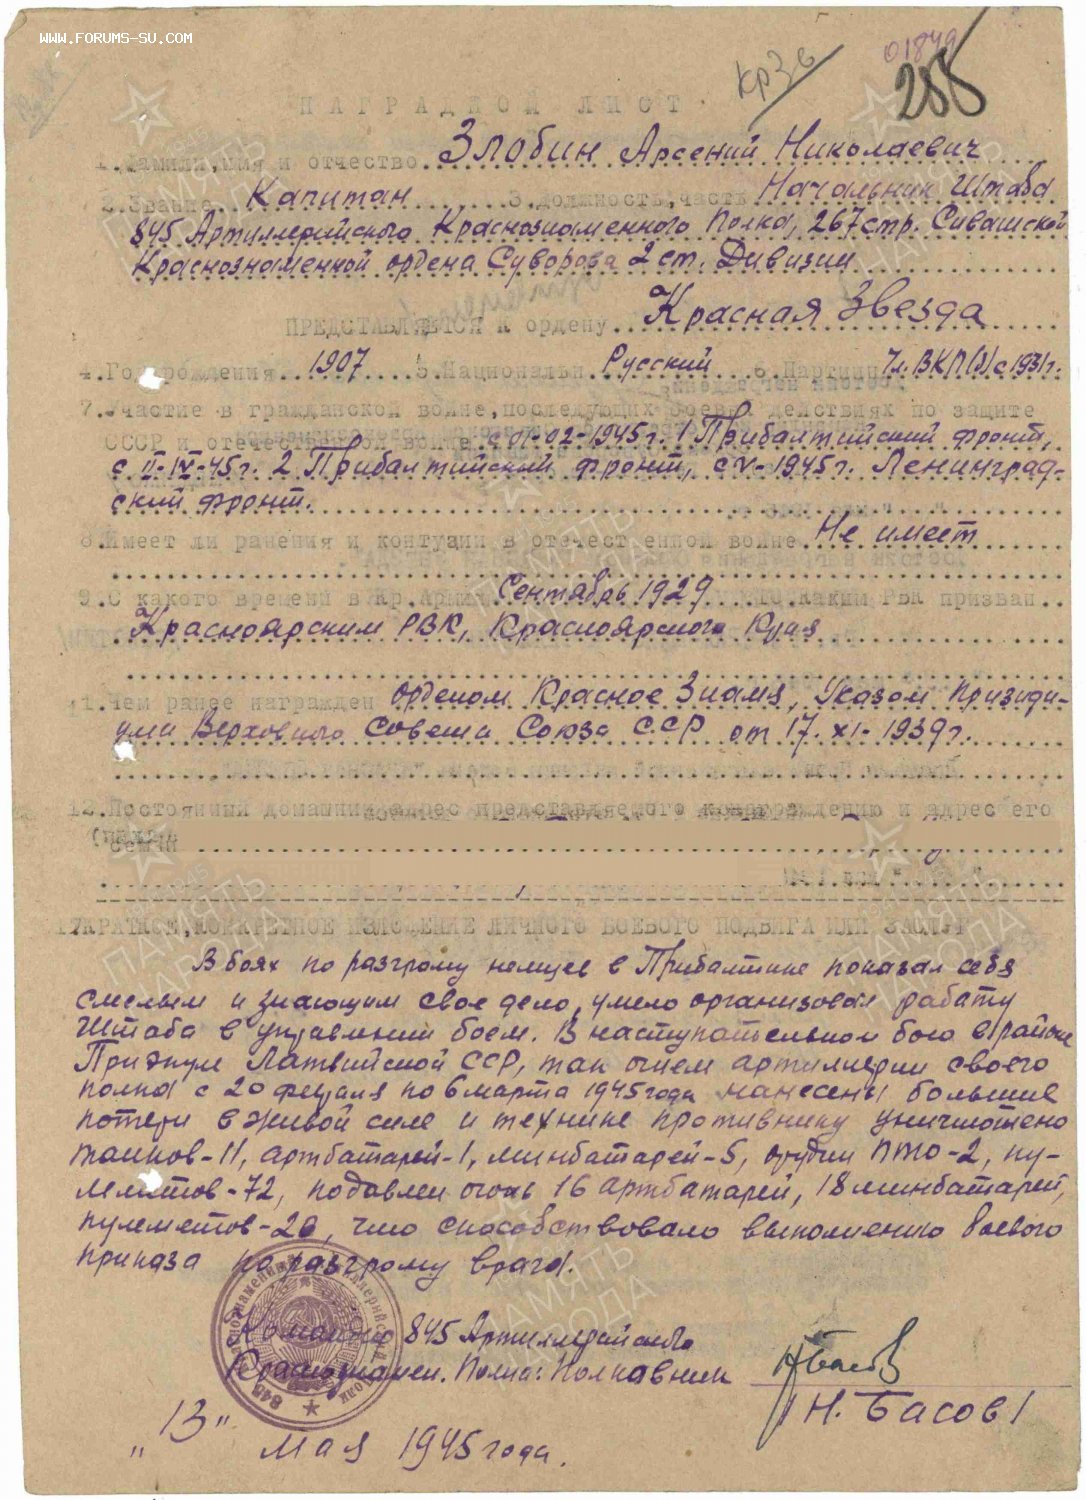 WWW.FORUMS-SU.COM
01849
Кр Зв
255
НАГРАДНОЙ ЛИСТ
1. Фамилия, имя и отчество Злобин Арсений Николаевич
2. Звание Капитан 3. должность, часть Начальник Штаба
845 Артиллерийского Краснознаменного Полка, 267 стр. Сивашской
Краснознаменной ордена Суворова 2 ст. Дивизии
ПРЕДСТАВЛЯЕТСЯ к ордену Красная Звезда
4. Год рождения 1907 5. Национальн. Русский 6. Партийн. Чл. ВКП(б) с 1931г.
7. Участие в гражданской войне, последующих боевых действиях по защите
СССР и отечественной войне с 01-02-1945г. 1 Прибалтийский фронт,
с II-IV-45г. 2 Прибалтийский фронт, с V-1945г. Ленинград-
ский фронт.
8. Имеет ли ранения и контузии в отечественной войне Не имеет
9. С какого времени в Кр. Армии Сентябрь 1929 10. Каким РВК призван
Красноярским РВК, Красноярского Края
11. Чем ранее награжден орденом Красное Знамя, Указом Призиди-
ума Верховного Совета Союза ССР от 17.XI-1939г.
12. Постоянный домашний адрес представляемого к награждению и адрес его
семьи
КРАТКОЕ, КОНКРЕТНОЕ ИЗЛОЖЕНИЕ ЛИЧНОГО БОЕВОГО ПОДВИГА ИЛИ ЗАСЛУГ
В боях по разгрому немцев в Прибалтике показал себя
смелым и знающим свое дело, умело организовал работу
Штаба в управлении боем. В наступательном бою в районе
Латвийской ССР, так огнем артиллерии своего
полка с 20 февраля по 6 марта 1945 года нанесены большие
потери в живой силе и технике противнику уничтожено
танков-11, артбатарей-1, минбатарей-5, орудий ПТО-2, пу-
леметов-72, подавлен огонь 16 артбатарей, 18 минбатарей,
пулеметов-20, что способствовало выполнению боевого
приказа по разгрому врага.
Командир 845 Артиллерийского
Краснознамен. Полка: Полковник
/Н. Басов/
"13" мая 1945 года.
ПАМЯТЬ НАРОДА